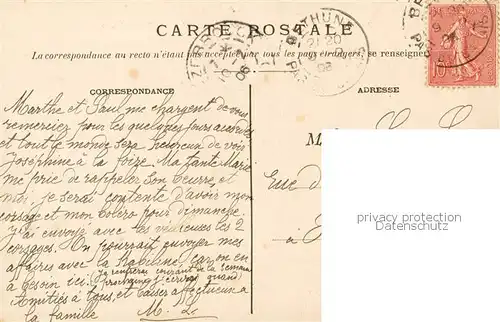 CARTE POSTALE
La correspondance au recto n'étant pas acceptée par tous les pays étrangers, se renseigner
CORRESPONDANCE
ADRESSE
Marthe et Paul me chargent de vous
remerciez pour les quelques jours accordés
et tout le monde sera heureux de voir
Joséphine à la foire. Ma tante Marie
me prie de rappeler son beurre, et
moi, je serai contente d'avoir mon
corsage et mon boléro pour dimanche.
J'ai envoyé avec les les 2
corsages. On pourrait envoyer mes
affaires avec la car on en
a besoin ici. (Je rentrerai courant de la semaine
prochaine, j'écrirai quand)
Amitiés à tous, et baisers affectueux à
la famille M. L.
M
Rue d
à
privacy protection
privacy protection
BETHUNE
21 20
06
10